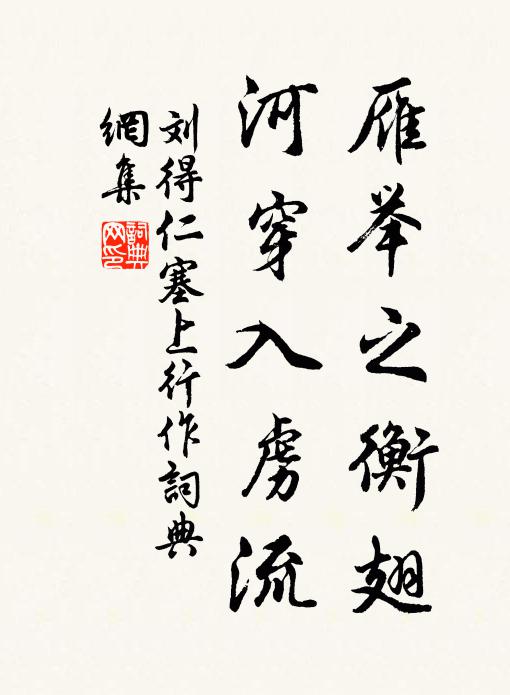 雁举之衡翅
河穿入虏流
刘得仁塞上行作詞典
網集
詞典
网印